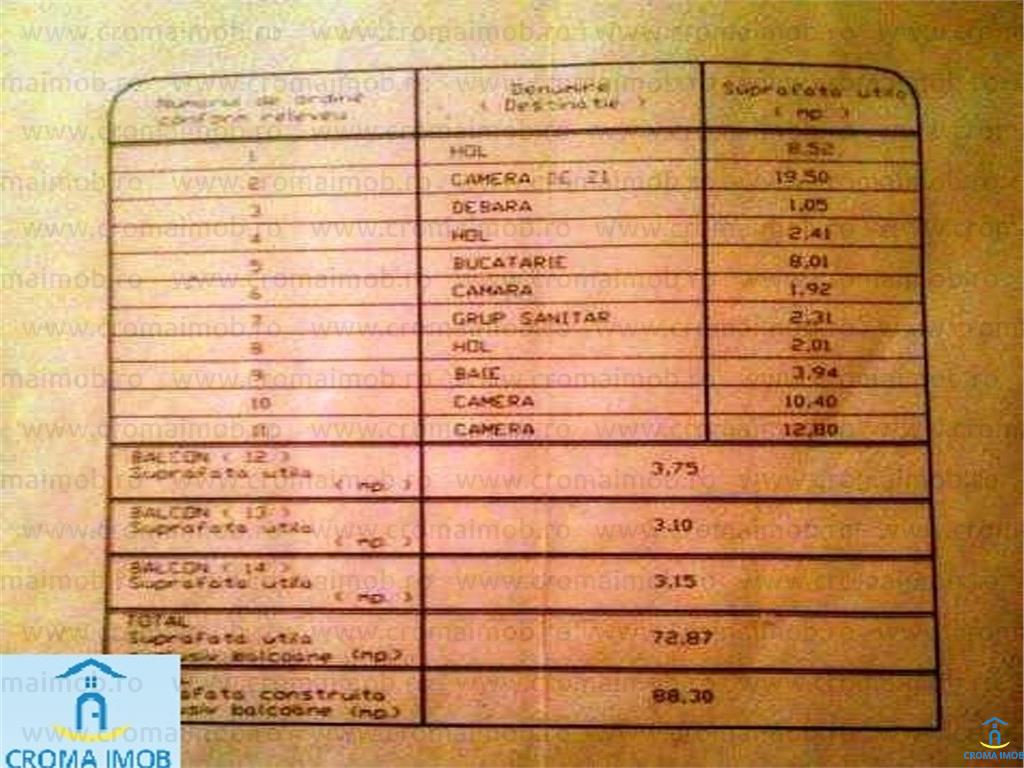 Numarul de ordine
conform releveu
Denumire
( Destinatie )
Suprafata utila
( mp. )
1 HOL 8.52
2 CAMERA DE ZI 19.50
3 DEBARA 1.05
4 HOL 2.41
5 BUCATARIE 8.01
6 CAMARA 1.92
7 GRUP SANITAR 2.31
8 HOL 2.01
9 BAIE 3.94
10 CAMERA 10.40
11 CAMERA 12.80
BALCON ( 12 )
Suprafata utila
( mp. )
3.75
BALCON ( 13 )
Suprafata utila
( mp. )
3.10
BALCON ( 14 )
Suprafata utila
( mp. )
3.15
TOTAL
Suprafata utila
balcoane (mp.)
72.87
construita
balcoane (mp.)
88.30
CROMA IMOB
CROMA IMOB
www.cromaimob.ro